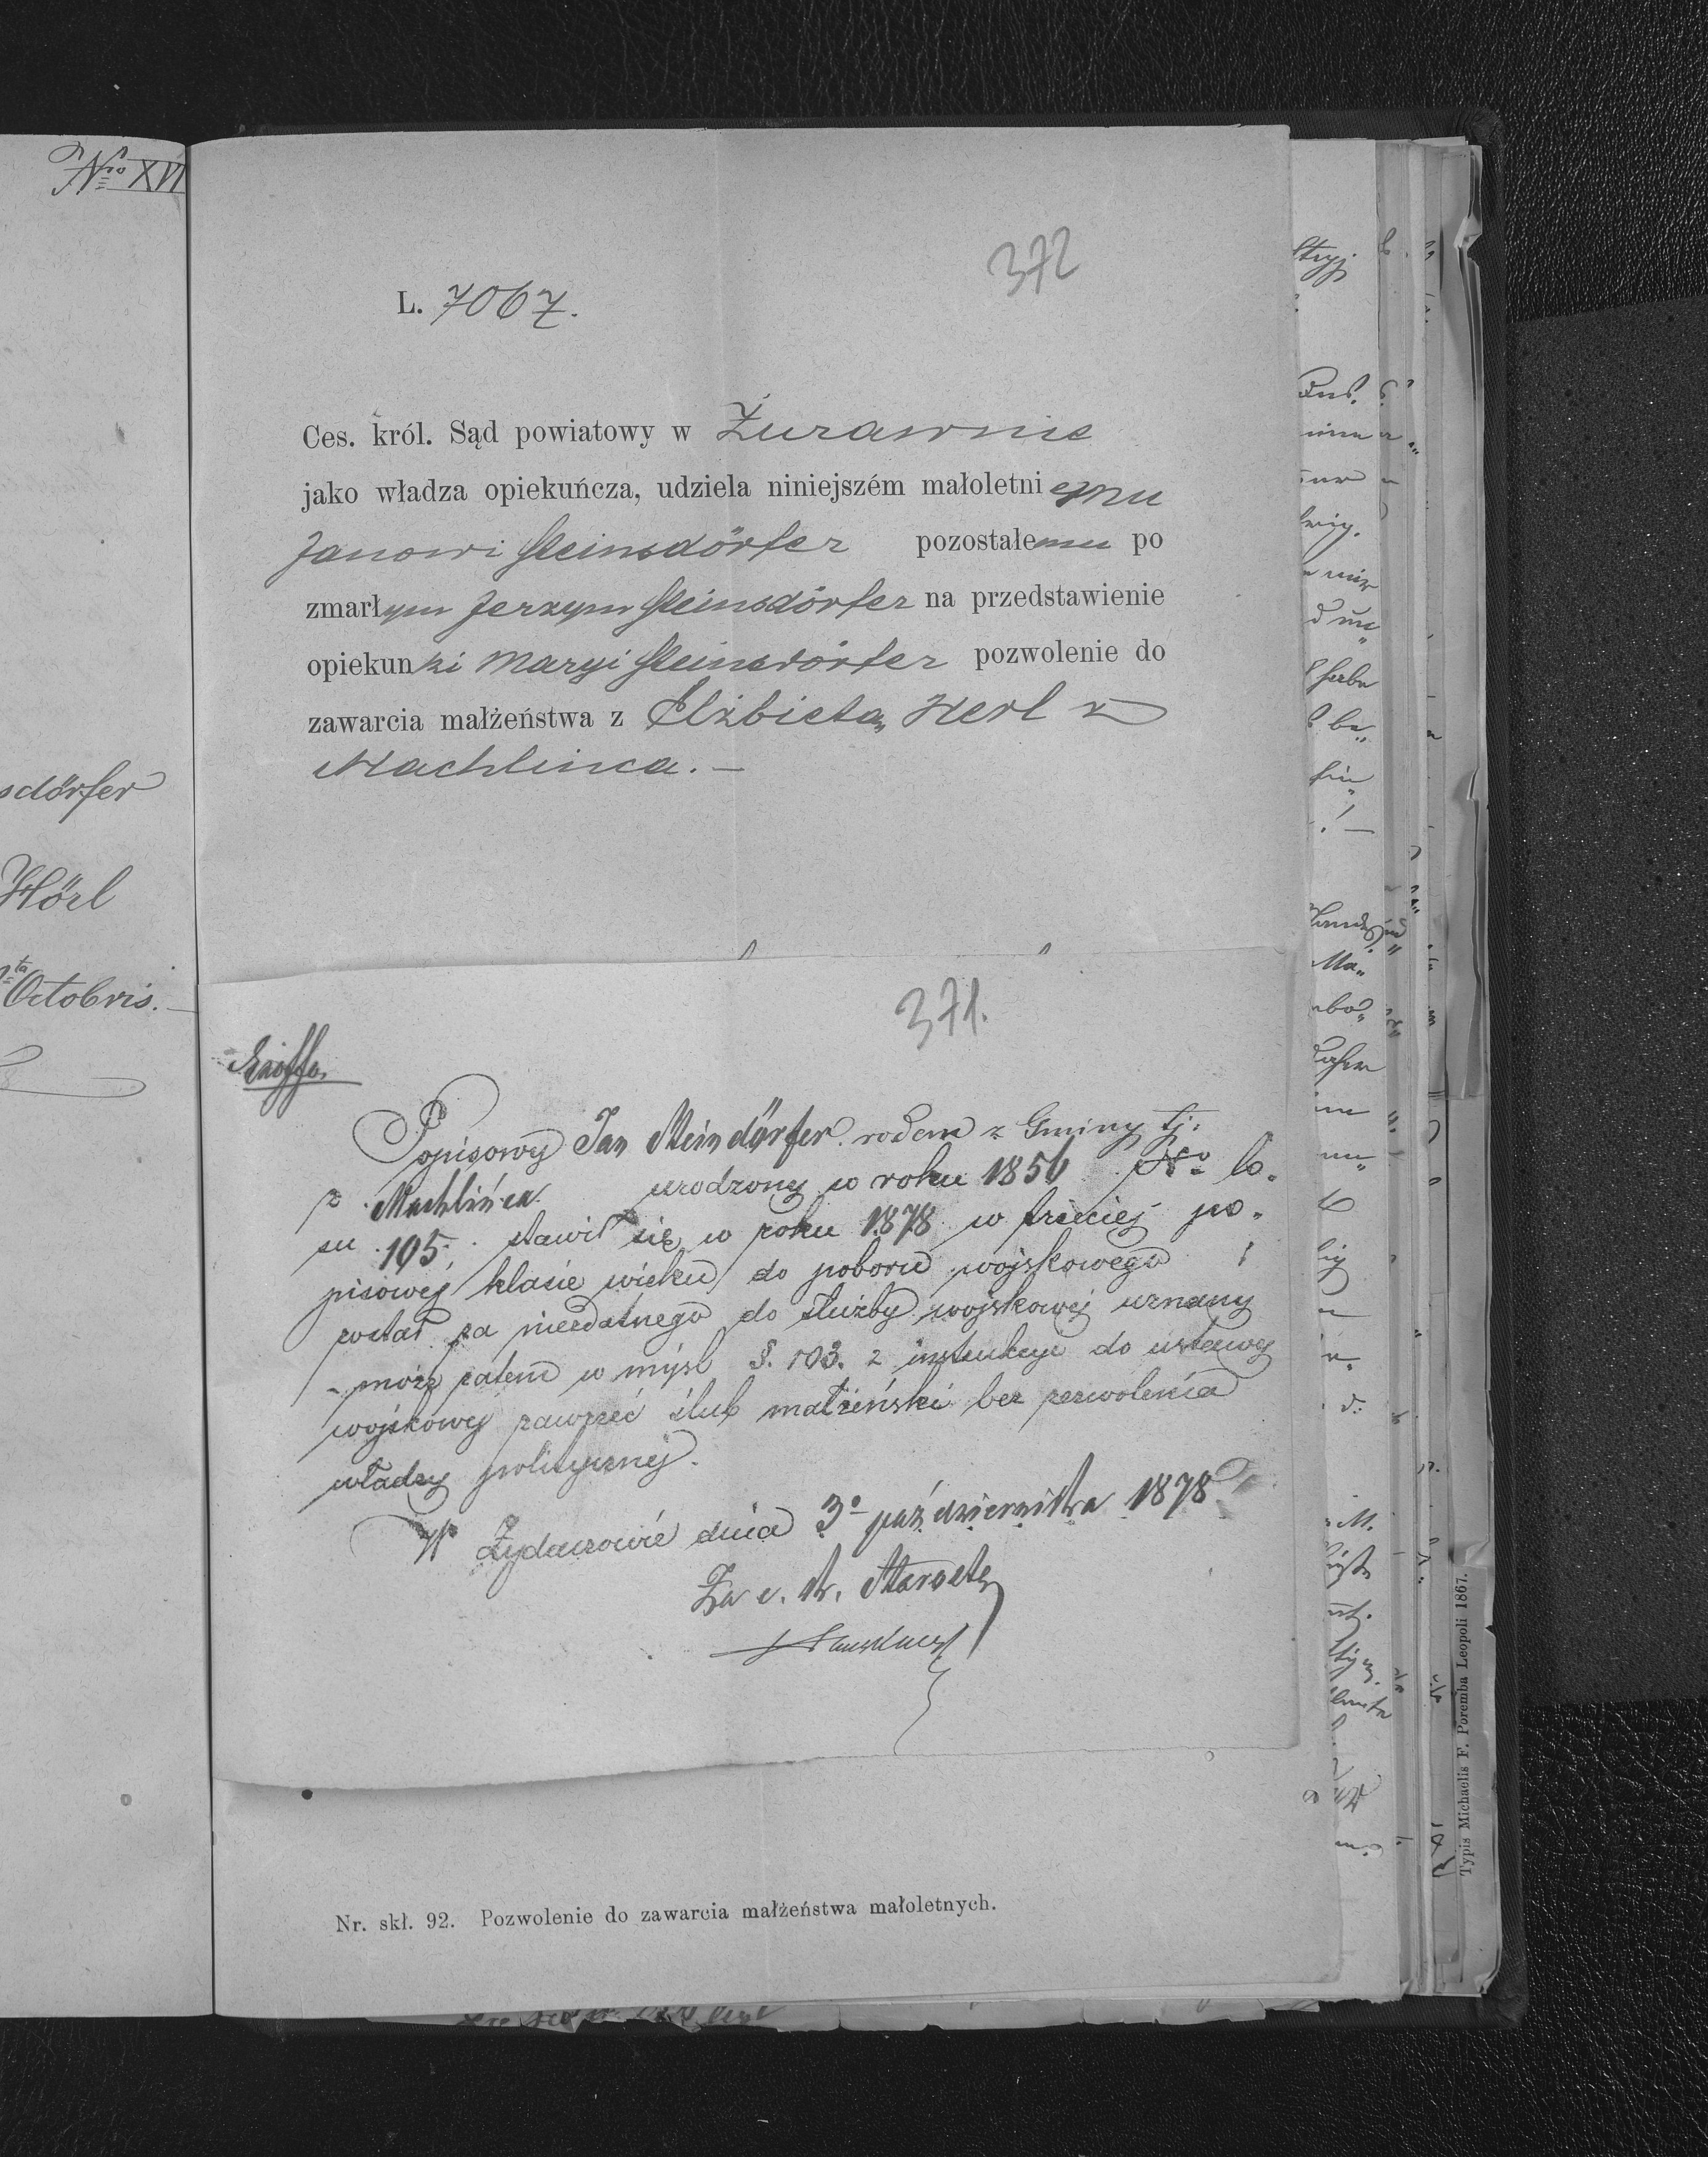 Nro XVI
sdörfer
Hörl
ta Octobris.
372
L. 7067.
Ces. król. Sąd powiatowy w Żurawnie
jako władza opiekuńcza, udziela niniejszém małoletniemu
Janowi Steinsdörfer pozostałemu po
zmarłym Jerzym Steinsdörfer na przedstawienie
opiekunki Maryi Steinsdörfer pozwolenie do
zawarcia małżeństwa z Elżbietą Herl z
Machlinca. —
371.
Popisowy Jan Steindörfer rodem z Gminy tj:
z Machlińca urodzony w roku 1856 No lo-
su 195. stawił się w roku 1878 w trzeciej po-
pisowej klasie wieku do poboru wojskowego i
został za niezdatnego do służby wojskowej uznany
- może zatem w myśl §. 103. z instrukcyi do ustawy
wojskowej zawrzeć ślub małżeński bez zezwolenia
władzy politycznej.
W Żydaczowie dnia 3o października 1878
Za c. k. Starostę
Nr. skł. 92. Pozwolenie do zawarcia małżeństwa małoletnych.
Typis Michaelis F. Poremba Leopoli 1867.